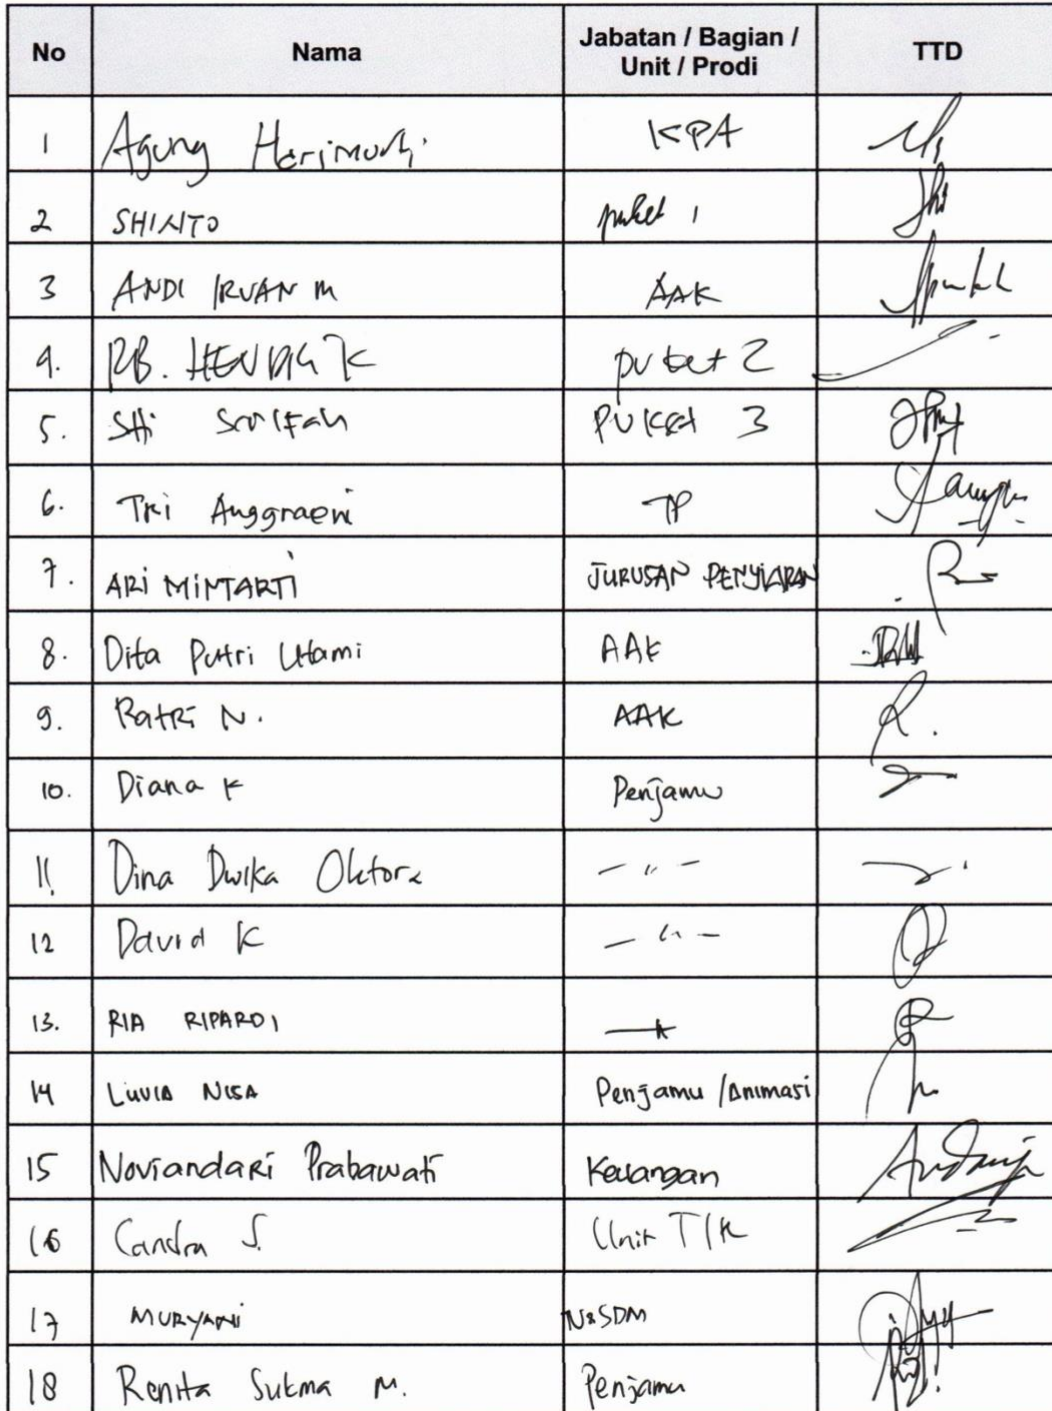 No Nama Jabatan / Bagian / Unit / Prodi TTD
1 Agung Harimurti KPA
2 SHINTO puket 1
3 ANDI IRVAN M AAK
4. RB. HENDRI K puket 2
5. Siti Puket 3
6. Tri Anggraeni TP
7. ARI MINTARTI JURUSAN PENYIARAN
8. Dita Putri Utami AAK
9. Ratri N. AAK
10. Diana K Penjamu
11. Dina Dwika Oktora - " -
12 David K - " -
13. RIA RIPARDI
14 LUVIA NISA Penjamu / Animasi
15 Noviandari Prabawati Keuangan
16 Candra S. Unit TIK
17 MURYANI SDM
18 Renita Sukma M. Penjamu